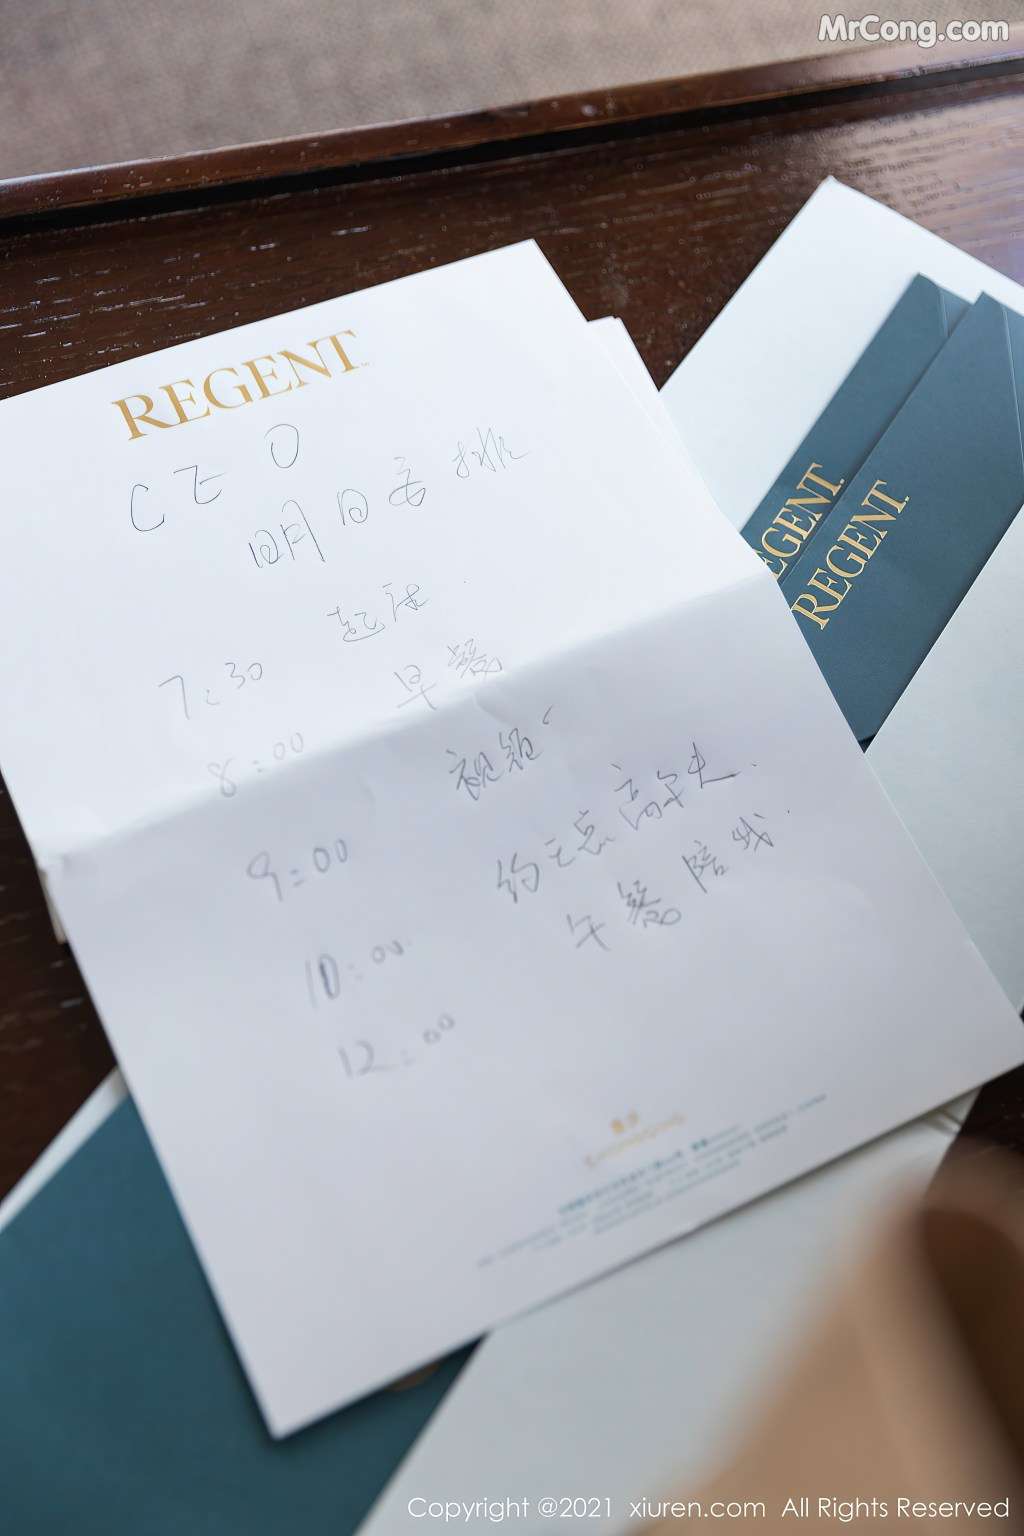 MrCong.com
REGENT
CEO
明日安排
7:30 起床
8:00 早餐
9:00 视频
10:00 约王总高尔夫.
12:00 午餐陪我.
REGENT
REGENT
Copyright @2021 xiuren.com All Rights Reserved